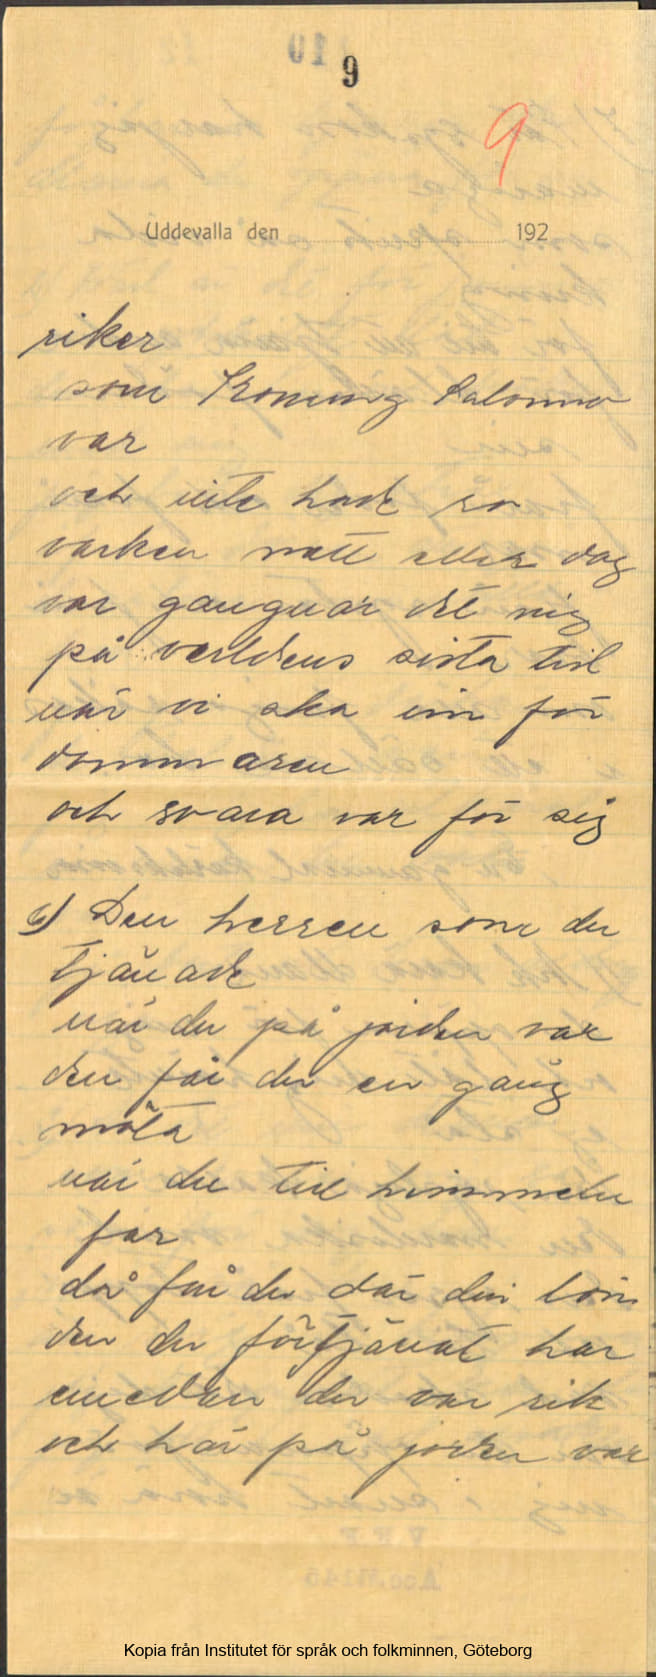 9
9
Uddevalla den 192
riker
som Konung Salomo
var
och inte hade ro
varken natt eller dag
var gangnar det mig
på världens sista tid
när vi ska inn för
dommaren
och svara var för sig
6) Den herren som du
tjänade
när du på jorden var
den får du en gång
möta
när du till himmelen
far
då får du där din lön
den du förtjänat har
emedan du var rik
och här på jorden var
Kopia från Institutet för språk och folkminnen, Göteborg